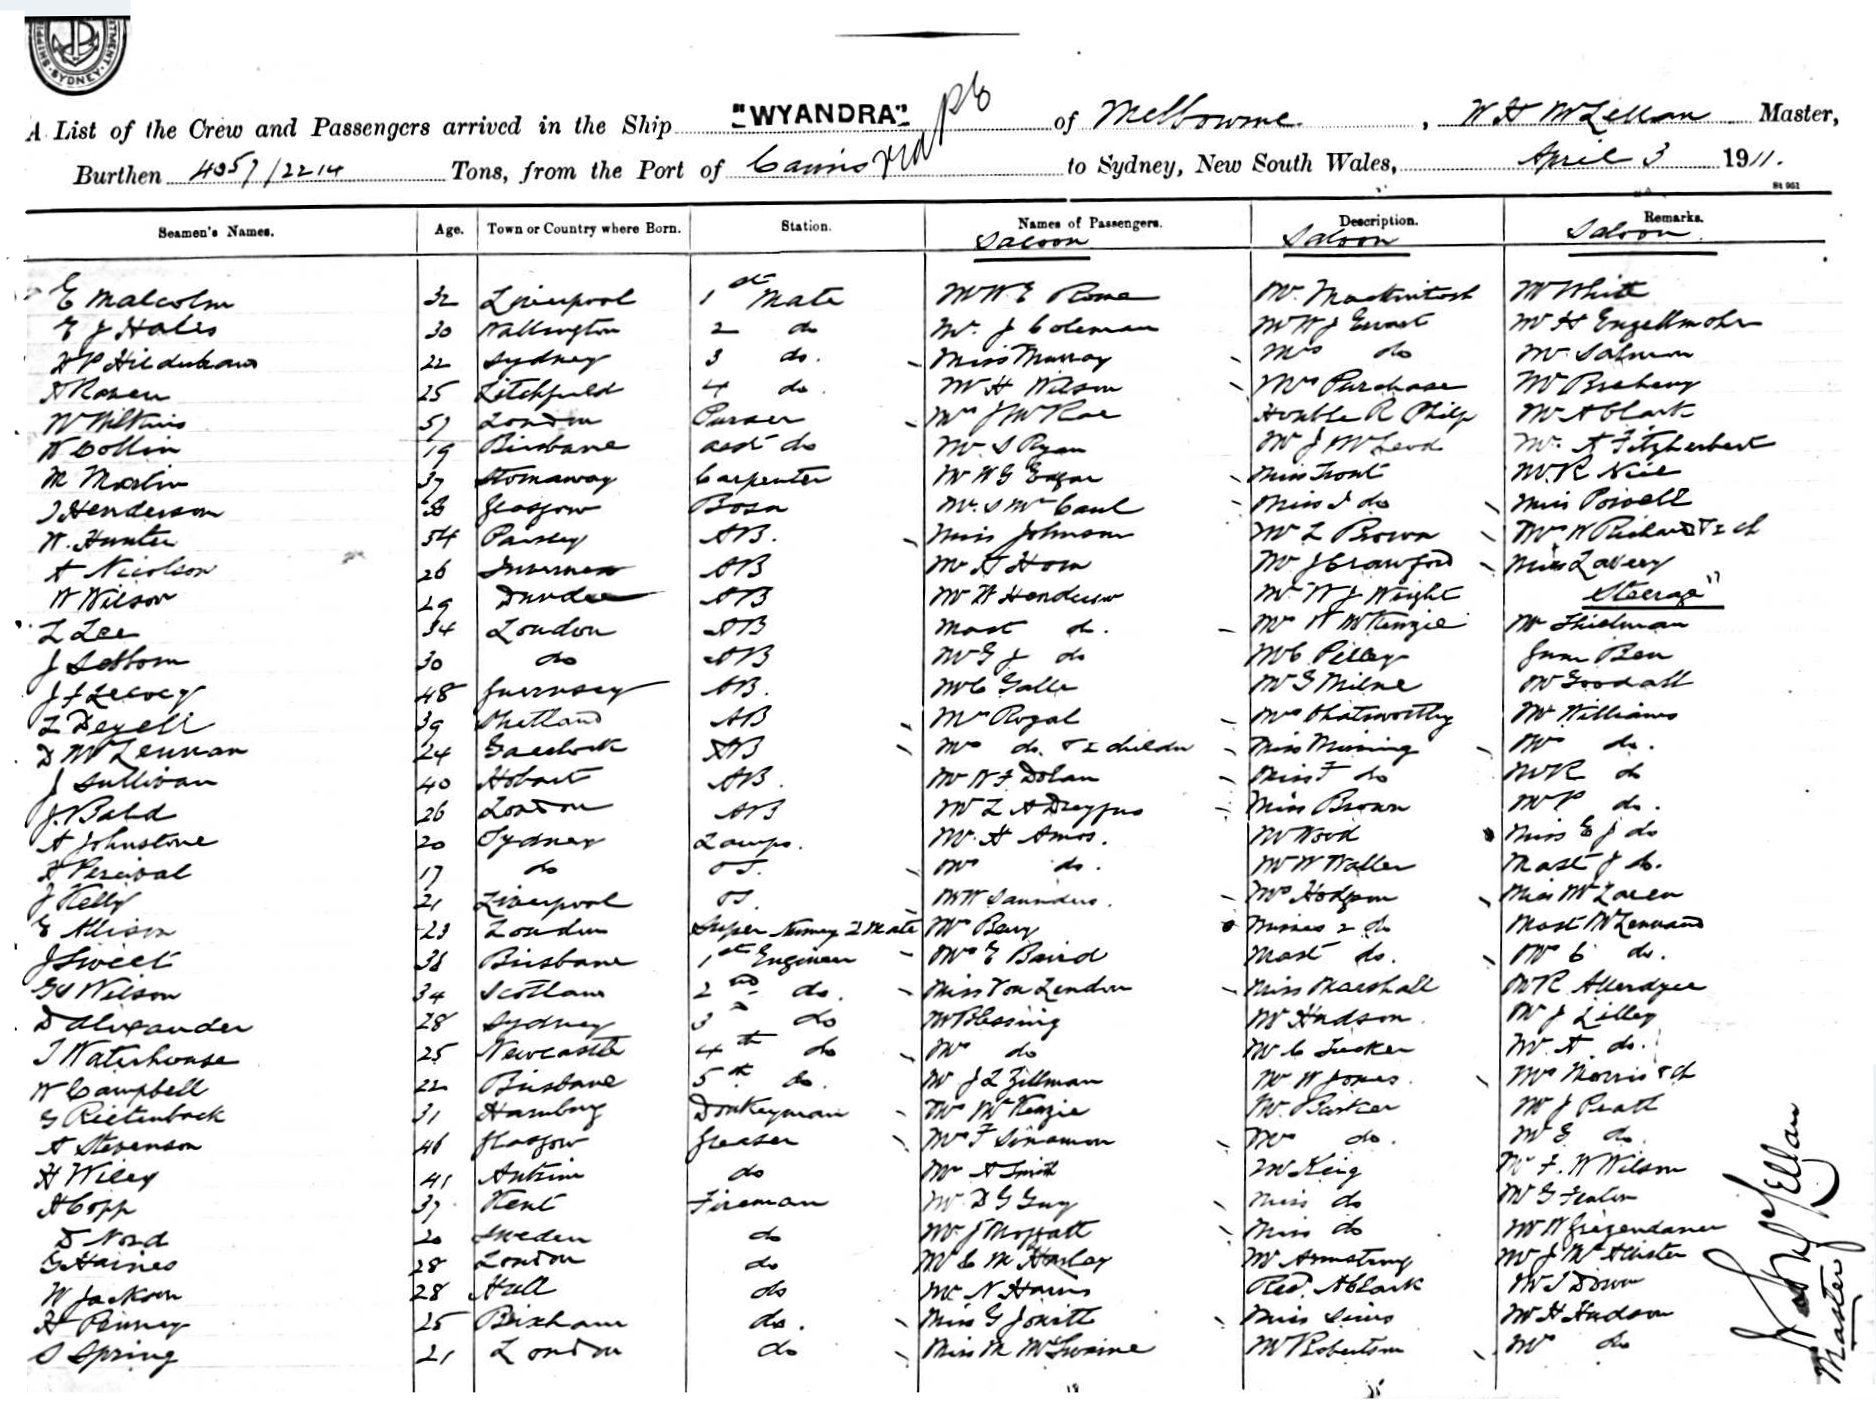 SYDNEY
"WYANDRA"
A List of the Crew and Passengers arrived in the Ship of Melbourne, W H McLellan Master,
Burthen 4057/2214 Tons, from the Port of Cairns to Sydney, New South Wales, April 3 1911.
St 951
Seamen's Names. Age. Town or Country where Born. Station. Names of Passengers. Description. Remarks.
Saloon Saloon Saloon
E Malcolm 32 Liverpool 1st Mate Mr W E Rome Mr. Mackintosh Mr White
E J Hales 30 Wallington 2 do Mr. J Coleman Mr W J Ernst Mr H Engellmohr
22 Sydney 3 do. Miss Murray Mrs do Mr Salmon
25 Litchfield 4 do. Mr H Wilson Mrs Purchase Mr Breheny
W Wilkins 57 London Purser Mrs J McRae Honble R Philp Mr A Clark
W Collin 19 Brisbane asst do Mr. S Ryan Mr J McLeod Mr. A Fitzherbert
M Martin 37 Stornaway Carpenter Mr W G Miss Trout Mr. R
J Henderson Glasgow Bosn Mr. S McCaul Miss J do Miss Powell
W. Hunter 54 Paisley AB. Miss Johnson Mr L Brown Mrs W Richards & 2 ch
A Nicolson 26 Inverness AB Mr A Horn Mr J Crawford Miss Lavery
W Wilson 29 Dundee AB Mr W Henderson Mr. W J Wright Steerage"
L Lee 34 London AB Mast do. Mrs W McKenzie Mr Thielman
J Sebbom 30 do AB Mr G J do Mr C Pilley Jum Ben
48 Guernsey AB. Mr C Galle Mr G Milne Mr Goodall
L Deyell 39 Shetland AB Mr Royal Mrs Chatsworthy Mr Williams
D McLennan 24 Gairloch AB Mrs do. & 2 childn Miss Mining Mrs do.
J Sullivan 40 Hobart AB. Mr W F Dolan Miss F do Mr R do
J. Bald 26 London AB Mr L A Dreyfus Miss Brown Mr P do.
A Johnstone 20 Sydney Lamps. Mr. H Amos. Mr Wood Miss E J do
Percival 17 do OS. Mrs do. Mr W Waller Mast J do.
J Kelly 21 Liverpool OS. Mr W Saunders. Mrs Hodgson Miss McLaren
E Allison 23 London Super Numy 2 Mate Mrs Berry Misses 2 do Mast McLennand
J Sweet 38 Brisbane 1st Engineer Mrs E Baird Mast do. Mrs C do.
G S Wilson 34 Scotland 2nd do. Miss Von Lendon Miss Marshall Mr R. Allerdyce
D Alexander 28 Sydney 3d do Mr Blessing Mr Hudson. Mr J Lilley
J Waterhouse 25 Newcastle 4th do Mrs do Mr C Tucker Mr. A do.
W Campbell 22 Brisbane 5th do. Mr J L Zillman Mr W Jones. Mrs Morris & ch
G Rietenback 31 Hamburg Donkeyman Mrs McKenzie Mr. Barker Mr J Pratt
A Stevenson 46 Glasgow Greaser Mrs F Sinamon Mrs do. Mr E do.
H Wiley 41 Antrim do Mr A Smith Mr King Mr F. W Wilson
H Copp 37 Kent Fireman Mr. D G Guy Miss do Mr G Fenton
D Nord 20 Sweden do Mr. J Moffatt Miss do Mr W Griegendaner
G Haines 28 London do Mr C M Harley Mr Armstrong Mr J McAllister
W Jackson 28 Hull do Mr. N Harris Rev. A Clark Mr J Down
H Penney 25 Brixham do. Miss G Jowitt Miss Sims Mr H Hudson
S Spring 21 London do Miss M McSwaine Mr Robertson Mrs do
W H McLellan
Master